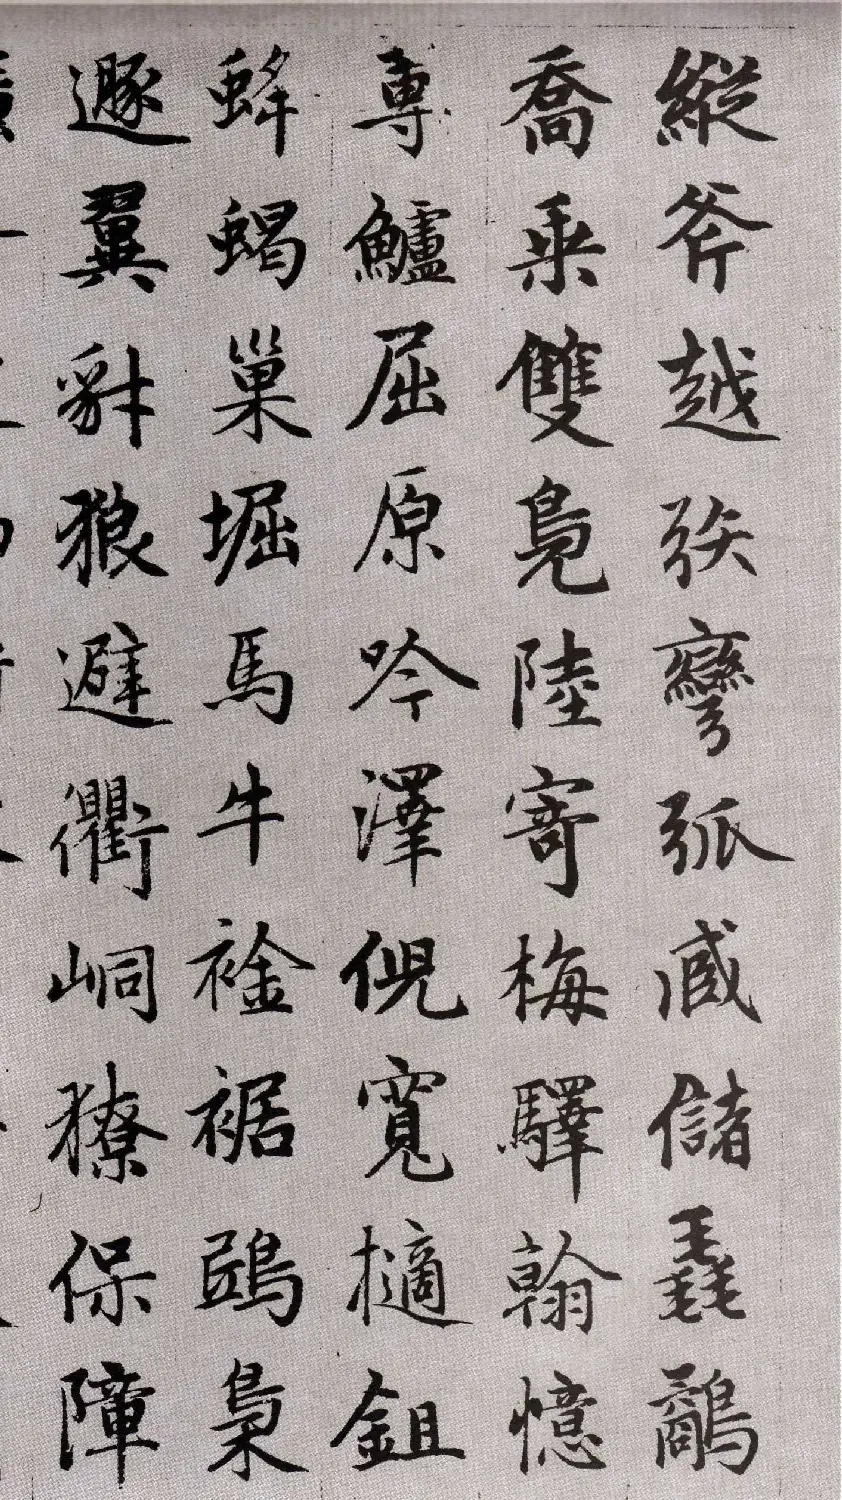 縱斧越彎弧臧儲毳鷸
喬乘雙鳧陸寄梅驛翰憶
專鱸屈原吟澤倪寬鉏
蜂蝎巢堀馬牛䘳裾鴟梟
遯翼豺狼避衢峒獠保障